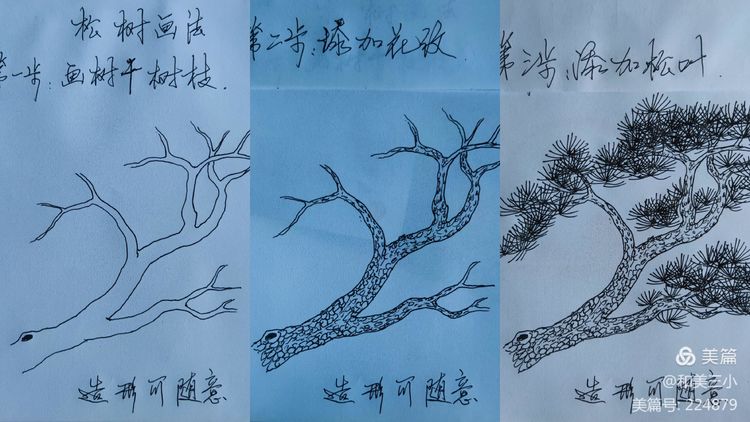 松树画法
第一步:画树干树枝.
造形可随意
第二步:添加花纹.
造形可随意
第三步:添加松叶.
造形可随意
美篇
@和美三小
美篇号:224879